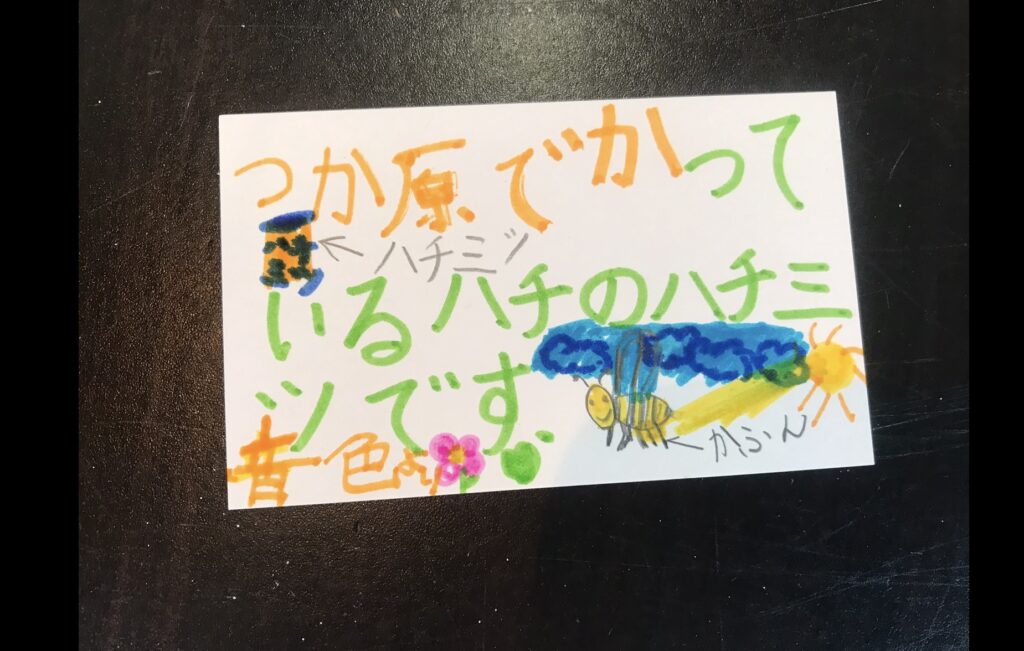 つか原でかって
ハチミツ
いるハチのハチミ
ツです
かふん
音色より